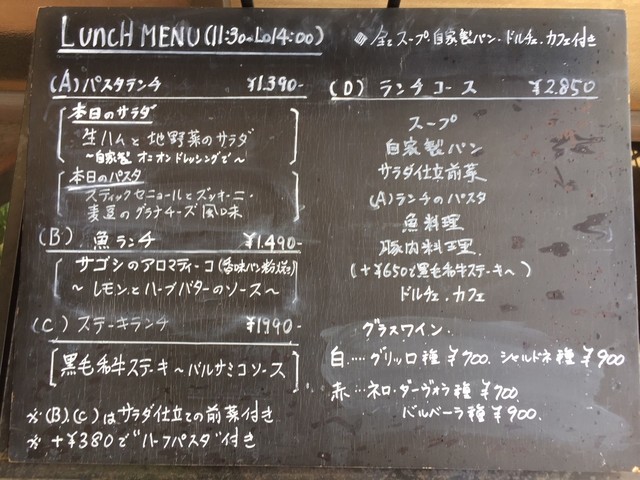 LUNCH MENU (11:30~Lo14:00)
◈ 全てスープ 自家製パン・ドルチェ・カフェ付き
(A) パスタランチ ¥1.390-
本日のサラダ
生ハムと地野菜のサラダ
~自家製 オニオンドレッシングで~
本日のパスタ
スティックセニョールとズッキーニ・
麦豆のグラナチーズ風味
(B) 魚ランチ ¥1.490-
サゴシのアロマティーコ(香味パン粉焼き)
~レモンとハーブバターのソース~
(C) ステーキランチ ¥1990-
黒毛和牛ステーキ~バルサミコソース
※(B).(C)はサラダ仕立ての前菜付き
※ +¥380で"ハーフパスタ"付き
(D) ランチコース ¥2.850
スープ
自家製パン
サラダ仕立前菜
(A)ランチのパスタ
魚料理
豚肉料理
(+¥650で黒毛和牛ステーキへ)
ドルチェ.カフェ
グラスワイン.
白‥‥グリッロ種 ¥700. シャルドネ種 ¥900
赤‥・ネロ・ダーヴォラ種 ¥700
バルベーラ種 ¥900.